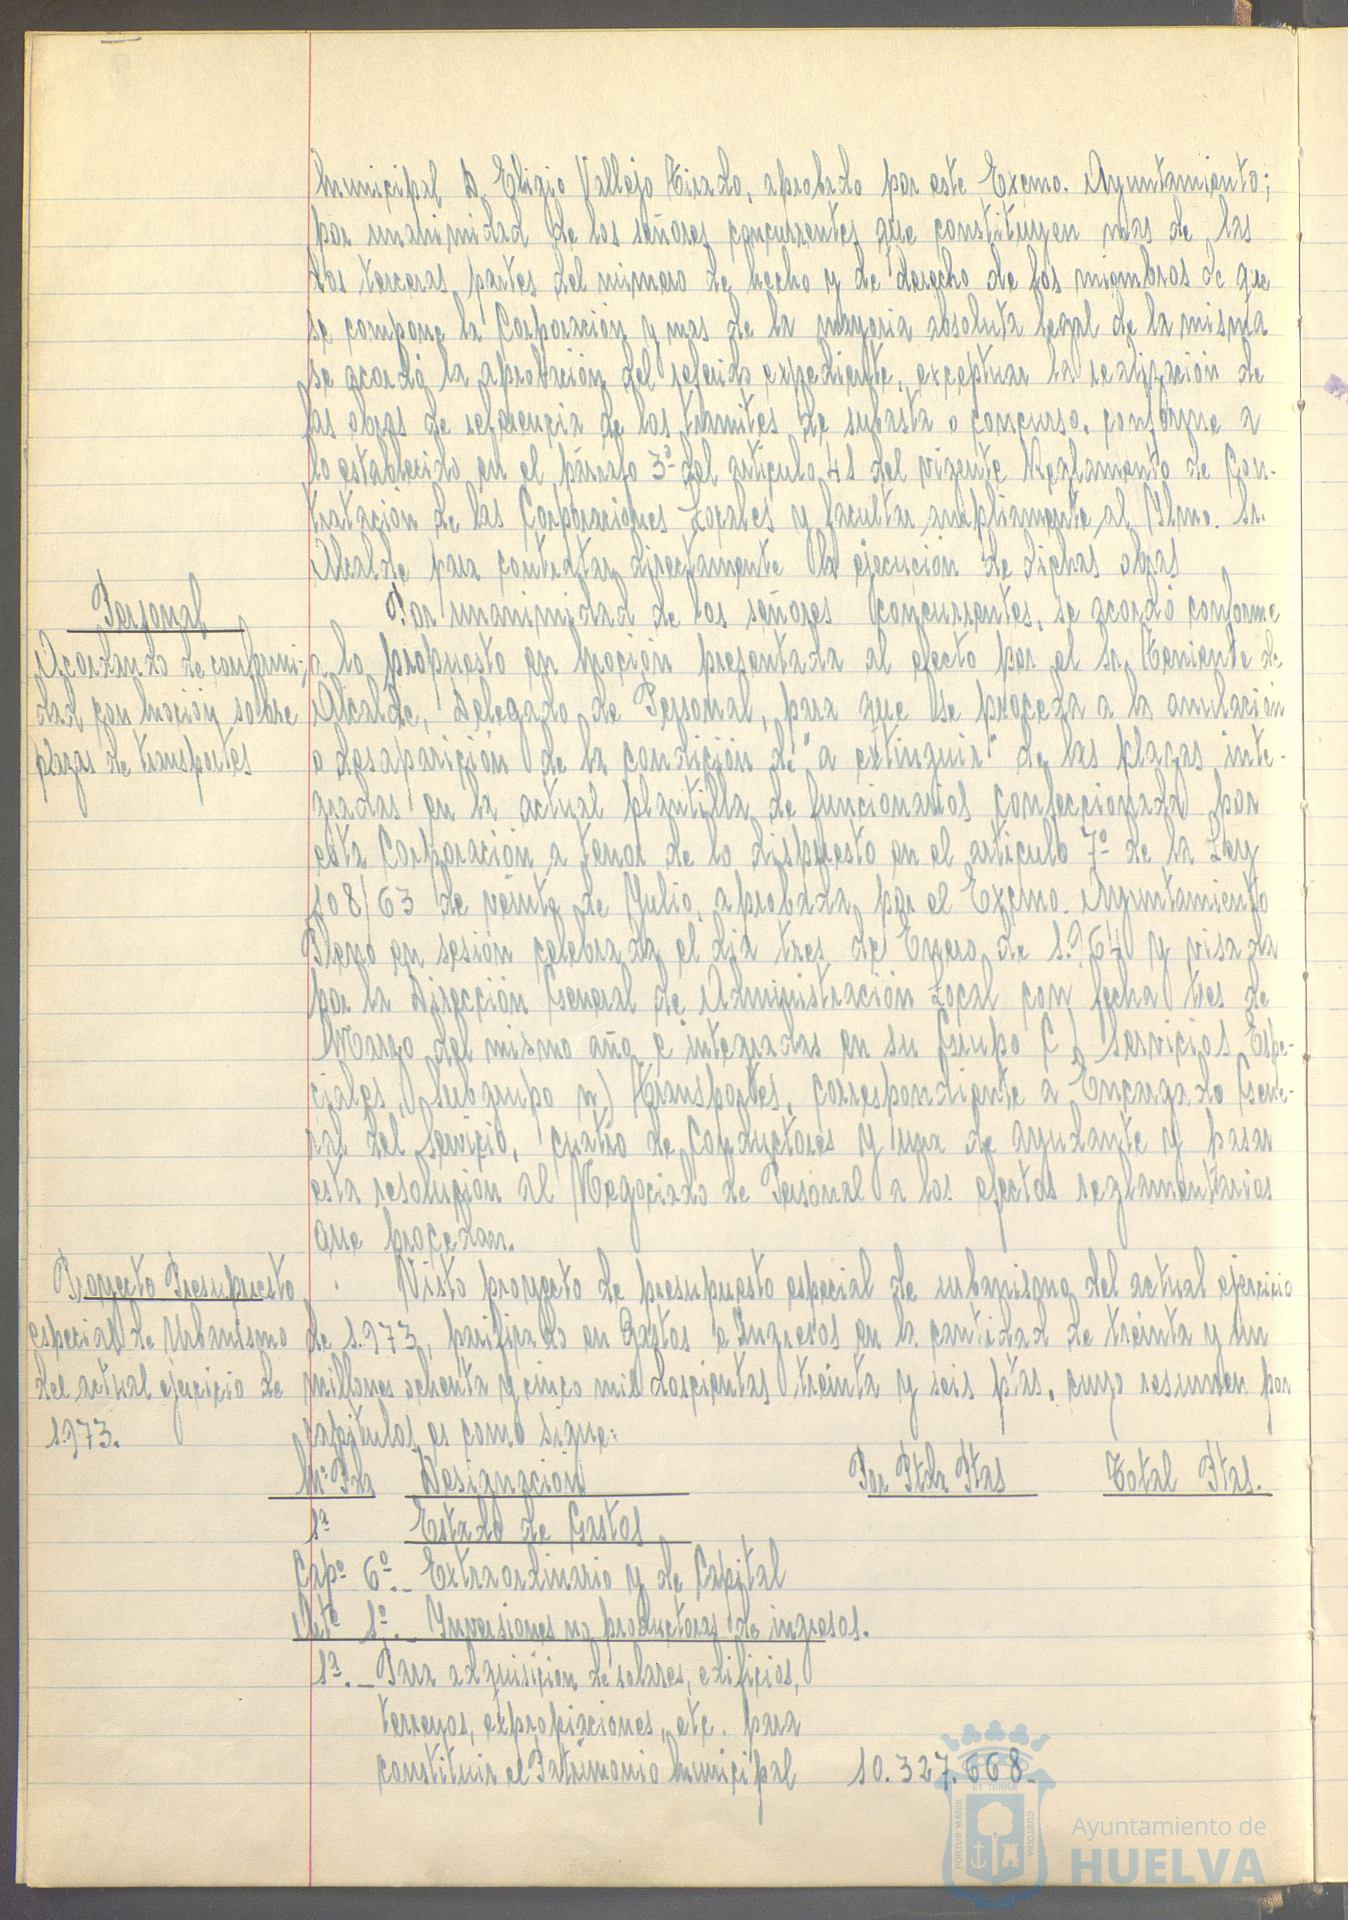 Municipal D. Eligio Vallejo Tirado, aprobado por este Excmo. Ayuntamiento;
por unanimidad de los señores concurrentes que constituyen mas de las
dos terceras partes del número de hecho y de derecho de los miembros de que
se compone la Corporación y mas de la mayoria absoluta legal de la misma
se acordó la aprobación del referido expediente, exceptuar la realización de
las obras de referencia de los trámites de subasta o concurso, conforme a
lo establecido en el párrafo 3º del artículo 41 del vigente Reglamento de Con-
tratación de las Corporaciones Locales y facultar ampliamente al Iltmo. Sr.
Alcalde para contratar directamente la ejecución de dichas obras
Personal
Acordando de conformi-
dad con moción sobre
plazas de transportes
Por unanimidad de los señores concurrentes, se acordó conforme
a lo propuesto en moción presentada al efecto por el Sr. Teniente de
Alcalde, Delegado de Personal, para que se proceda a la anulación
o desaparición de la condición de "a extinguir" de las plazas inte-
gradas en la actual plantilla de funcionarios confeccionada por
esta Corporación a tenor de lo dispuesto en el artículo 7º de la Ley
108/63 de veinte de Julio, aprobada por el Excmo. Ayuntamiento
Pleno en sesión celebrada el dia tres de Enero de 1.964 y visada
por la Dirección General de Administración Local con fecha tres de
Marzo del mismo año e integradas en su Grupo C) Servicios Espe-
ciales, Subgrupo n) Transportes, correspondiente a Encargado Gene-
ral del Servicio, cuatro de Conductores y una de ayudante y pasar
esta resolución al Negociado de Personal a los efectos reglamentarios
que procedan.
Proyecto Presupuesto
especial de Urbanismo
del actual ejercicio de
1.973.
Visto proyecto de presupuesto especial de urbanismo del actual ejercicio
de 1.973, pacificado en Gastos e Ingresos en la cantidad de treinta y un
millones ochenta y cinco mil doscientas treinta y seis ptas, cuyo resumen por
capitulos es como sigue:
Nº Pda Designación Por Ptda Ptas Total Ptas.
1ª Estado de Gastos
Capº 6º.- Extraordinario y de Capital
Artº 1º.- Inversiones no productoras de ingresos.
1ª.- Para adquisición de solares, edificios,
terrenos, expropiaciones, etc. para
constituir el Patrimonio Municipal 10.327.668.-
PORTUS MARIS ET TERRAE CUSTODIA
Ayuntamiento de
HUELVA